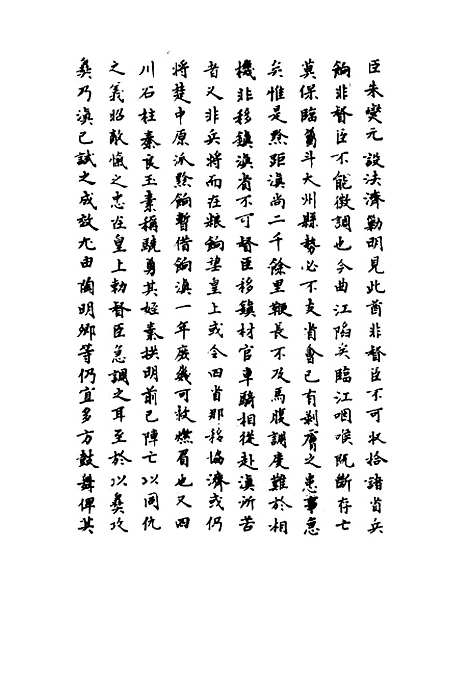 臣朱燮元設法濟勦明見此酋非督臣不可收拾諸省兵
餉非督臣不能徵調也今曲江陷矣臨江咽喉阨斷存亡
莫保臨蒭斗大州縣勢必不支省會已有剥膚之患事急
矣惟是黔距滇尚二千餘里鞭長不及馬腹調度難於相
機非移鎮滇省不可督臣移鎮材官車騎相從赴滇所苦
者又非兵將而在粮餉墊皇上或令四省那移協濟或仍
將楚中原派黔餉暫借餉滇一年庶幾可救燃眉也又四
川石柱秦良玉素稱驍勇其姪秦拱明前已陣亡以同仇
之義昭敵愾之忠在皇上勅督臣急調之耳至於以彜攻
彜乃滇已試之成效尤由陶明卿等仍宜多方鼓舞俾其